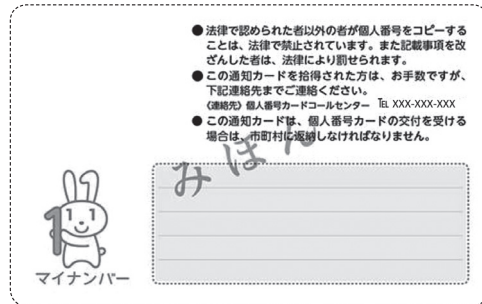 ●法律で認められた者以外の者が個人番号をコピーする
ことは、法律で禁止されています。また記載事項を改
ざんした者は、法律により罰せられます。
●この通知カードを拾得された方は、お手数ですが、
下記連絡先までご連絡ください。
《連絡先》個人番号カードコールセンター ℡ XXX-XXX-XXX
●この通知カードは、個人番号カードの交付を受ける
場合は、市町村に返納しなければなりません。
みほん
1
1 1
マイナンバー